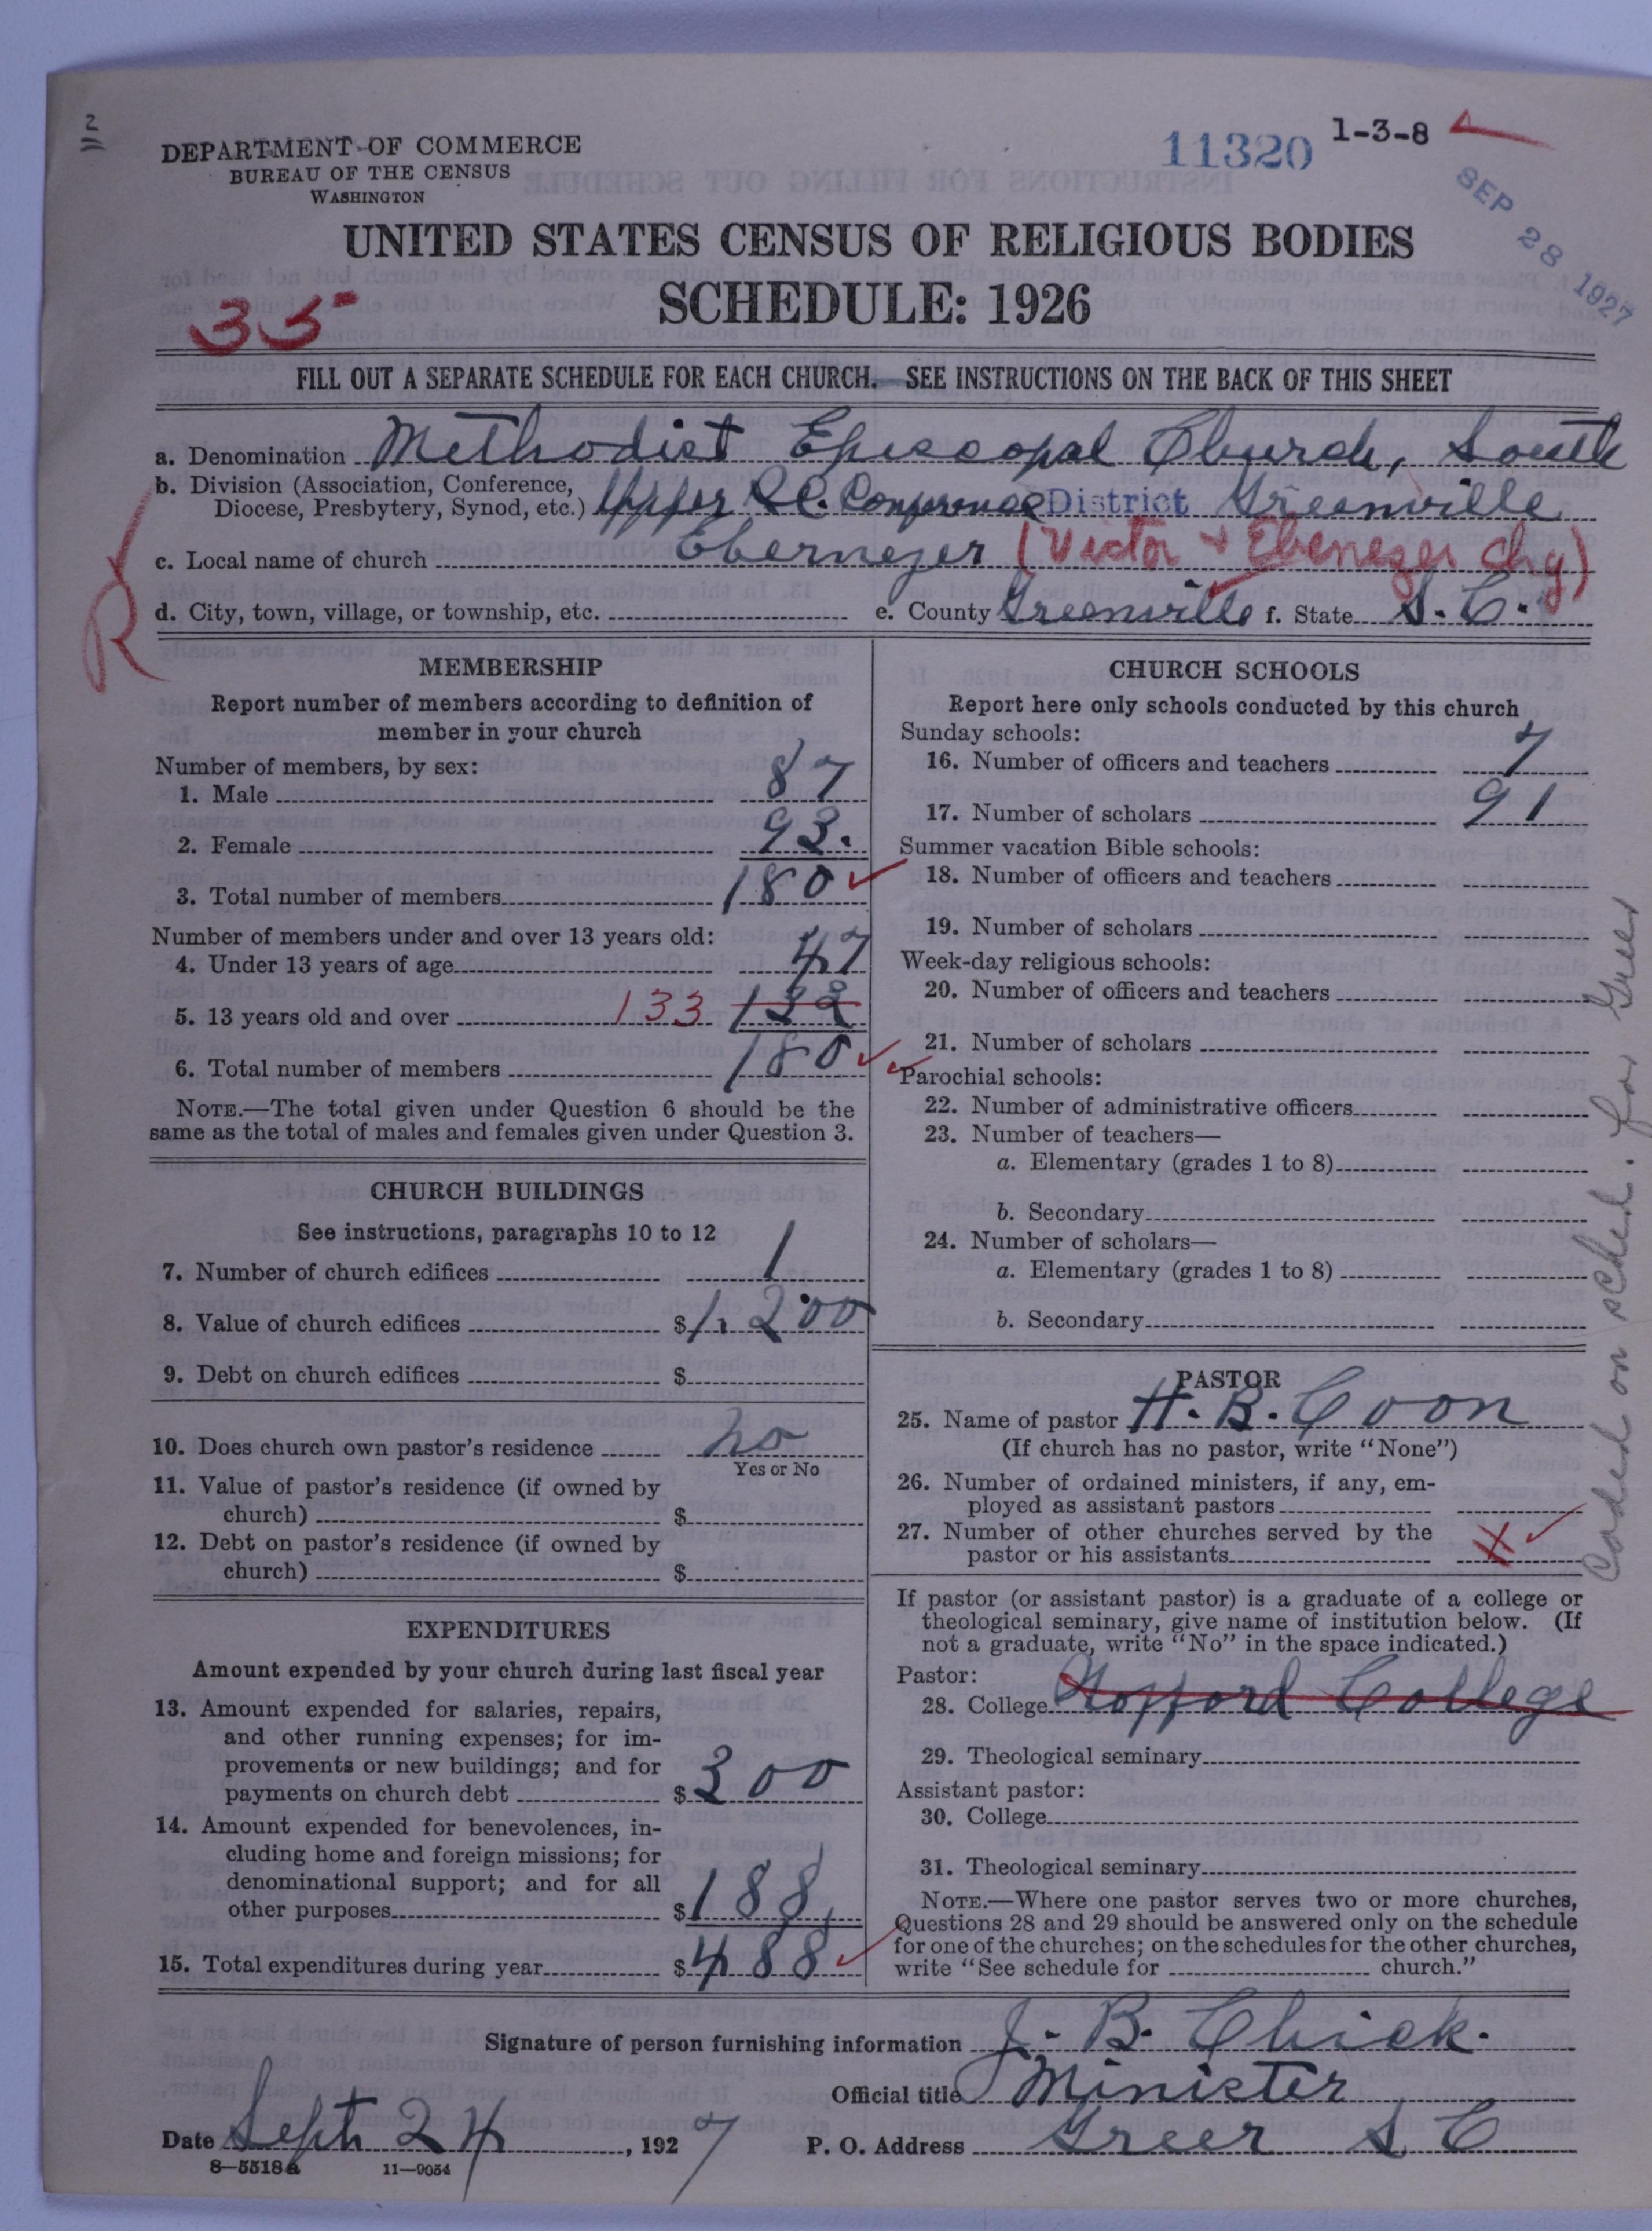 2
DEPARTMENT OF COMMERCE
BUREAU OF THE CENSUS
WASHINGTON
11320
1-3-8
SEP 28 1927
UNITED STATES CENSUS OF RELIGIOUS BODIES
SCHEDULE: 1926
33
FILL OUT A SEPARATE SCHEDULE FOR EACH CHURCH. SEE INSTRUCTIONS ON THE BACK OF THIS SHEET
a. Denomination Methodist Episcopal Church, South
b. Division (Association, Conference,
Diocese, Presbytery, Synod, etc.) Upper S.C. Conference District Greenville
c. Local name of church Ebernezer (Victor + Ebenezer Chg)
d. City, town, village, or township, etc. e. County Greenville f. State S. C.
R
MEMBERSHIP
Report number of members according to definition of
member in your church
Number of members, by sex:
1. Male 87
2. Female 93.
3. Total number of members 180
Number of members under and over 13 years old:
4. Under 13 years of age 47
5. 13 years old and over 133
6. Total number of members 180
NOTE.—The total given under Question 6 should be the
same as the total of males and females given under Question 3.
CHURCH BUILDINGS
See instructions, paragraphs 10 to 12
7. Number of church edifices 1
8. Value of church edifices $1,200
9. Debt on church edifices $
10. Does church own pastor's residence no
Yes or No
11. Value of pastor's residence (if owned by
church) $
12. Debt on pastor's residence (if owned by
church) $
EXPENDITURES
Amount expended by your church during last fiscal year
13. Amount expended for salaries, repairs,
and other running expenses; for im-
provements or new buildings; and for
payments on church debt $300
14. Amount expended for benevolences, in-
cluding home and foreign missions; for
denominational support; and for all
other purposes $188
15. Total expenditures during year $488
CHURCH SCHOOLS
Report here only schools conducted by this church
Sunday schools:
16. Number of officers and teachers 7
17. Number of scholars 91
Summer vacation Bible schools:
18. Number of officers and teachers
19. Number of scholars
Week-day religious schools:
20. Number of officers and teachers
21. Number of scholars
Parochial schools:
22. Number of administrative officers
23. Number of teachers—
a. Elementary (grades 1 to 8)
b. Secondary
24. Number of scholars—
a. Elementary (grades 1 to 8)
b. Secondary
PASTOR
25. Name of pastor H. B. Coon
(If church has no pastor, write "None")
26. Number of ordained ministers, if any, em-
ployed as assistant pastors
27. Number of other churches served by the
pastor or his assistants
If pastor (or assistant pastor) is a graduate of a college or
theological seminary, give name of institution below. (If
not a graduate, write "No" in the space indicated.)
Pastor:
28. College Wofford College
29. Theological seminary
Assistant pastor:
30. College
31. Theological seminary
NOTE.—Where one pastor serves two or more churches,
Questions 28 and 29 should be answered only on the schedule
for one of the churches; on the schedules for the other churches,
write "See schedule for church."
Coded on sched. for Greer
Signature of person furnishing information J. B. Chick.
Official title Minister
Date Sept 24, 1927 P. O. Address Greer S C
8—5518a 11—9054